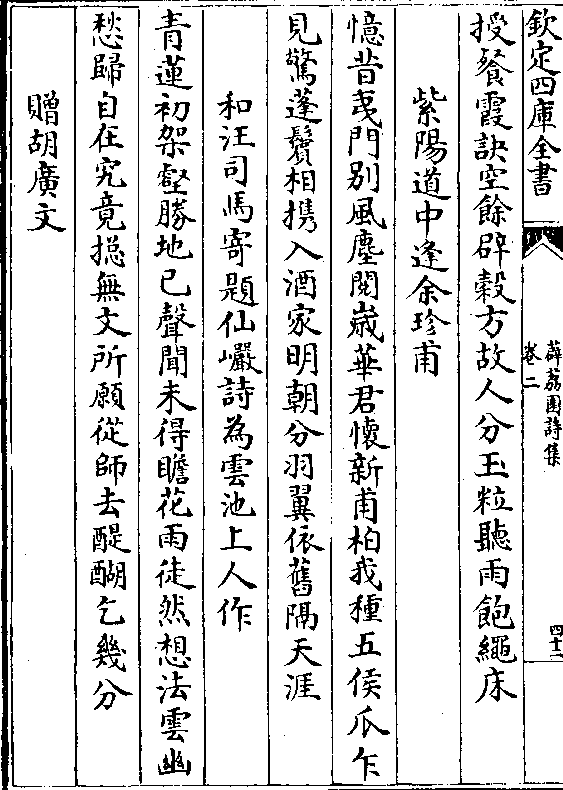 欽定四庫全書
薜荔園詩集
卷二
四十二
授餐霞訣空餘辟穀方故人分玉粒聽雨飽繩床
紫陽道中逢余珍甫
憶昔夷門别風塵閱嵗華君懷新甫柏我種五侯瓜乍
見驚蓬鬢相携入酒家明朝分羽翼依舊隔天涯
和汪司馬寄題仙巖詩為雲池上人作
青蓮初架壑勝地已聲聞未得瞻花雨徒然想法雲幽
愁歸自在究竟揔無文所願從師去醍醐乞幾分
贈胡廣文